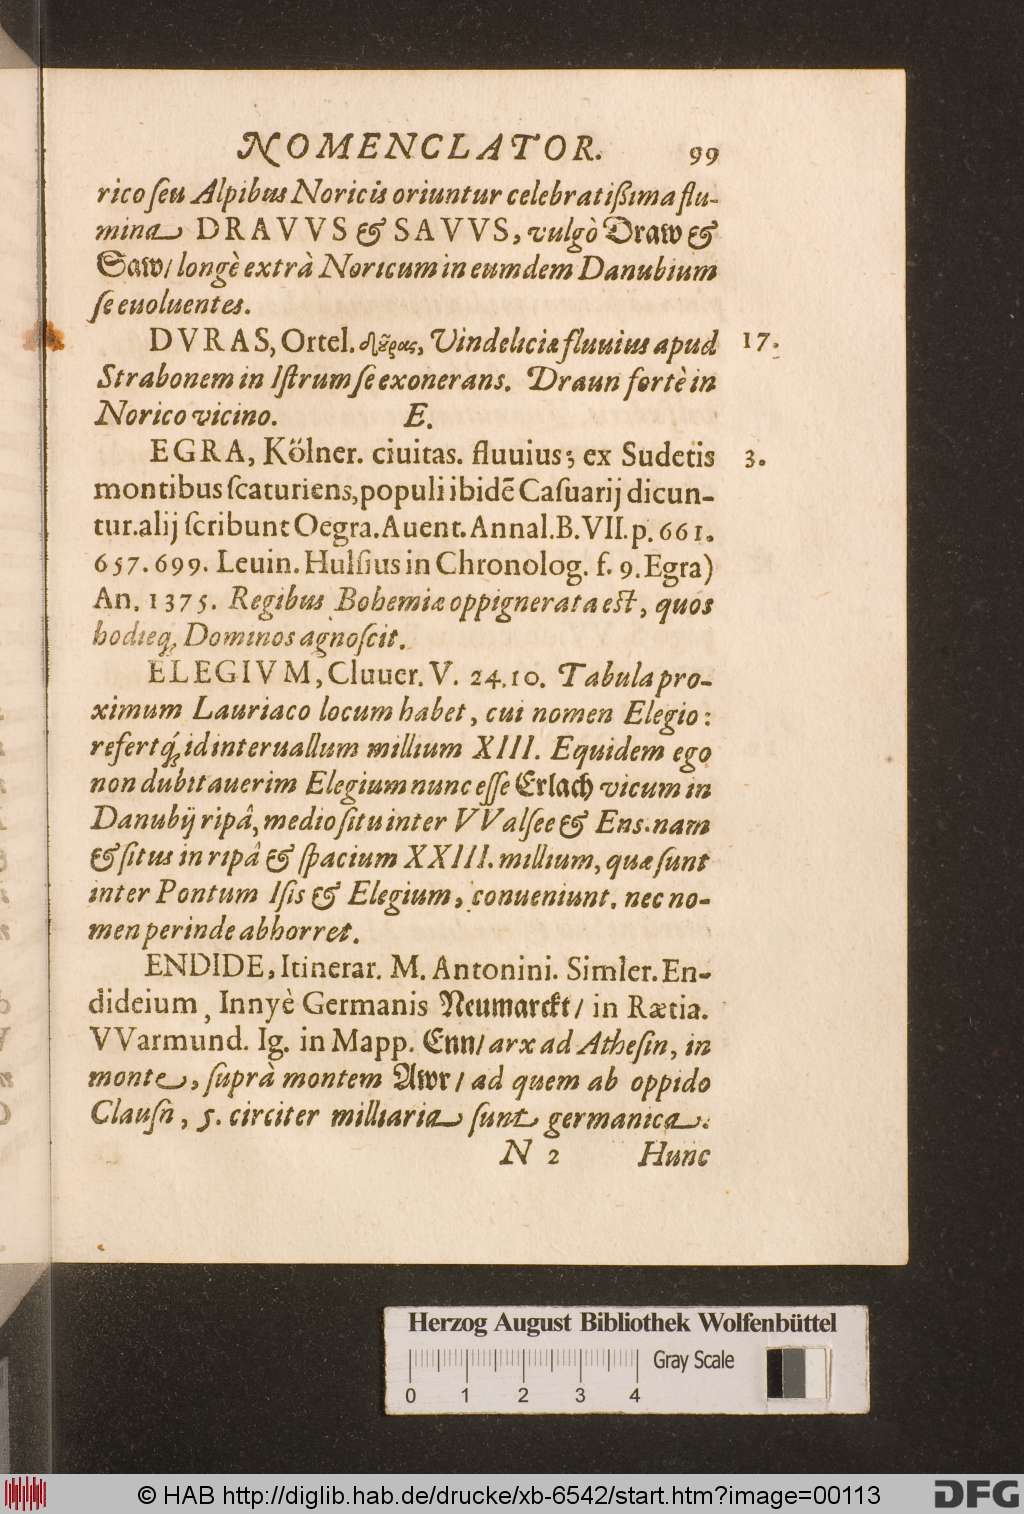 NOMENCLATOR. 99
rico ſeu Alpibus Noricis oriuntur celebratiſsima flu-
mina DRAVVS & SAVVS, vulgò Draw &
Saw/ longè extrà Noricum in eumdem Danubium
ſe euoluentes.
DVRAS, Ortel. Δȣ̃ρας, Vindeliciæ fluuius apud 17.
Strabonem in Iſtrum ſe exonerans. Draun fortè in
Norico vicino. E.
EGRA, Kölner. ciuitas. fluuius; ex Sudetis 3.
montibus ſcaturiens, populi ibidē Caſuarij dicun-
tur. alij ſcribunt Oegra. Auent. Annal. B. VII. p. 661.
657. 699. Leuin. Hulſius in Chronolog. f. 9. Egra)
An. 1375. Regibus Bohemiæ oppignerata eſt, quos
hodieq; Dominos agnoſcit.
ELEGIVM, Cluuer. V. 24. 10. Tabula pro-
ximum Lauriaco locum habet, cui nomen Elegio:
refertq́; id interuallum millium XIII. Equidem ego
non dubitauerim Elegium nunc eſſe Erlach vicum in
Danubij ripâ, medio ſitu inter VValſee & Ens. nam
& ſitus in ripâ & ſpacium XXIII. millium, quæ ſunt
inter Pontum Iſis & Elegium, conueniunt. nec no-
men perinde abhorret.
ENDIDE, Itinerar. M. Antonini. Simler. En-
dideium, Innyè Germanis Neumarckt/ in Rætia.
VVarmund. Ig. in Mapp. Enn/ arx ad Atheſin, in
monte, ſuprà montem Awr/ ad quem ab oppido
Clauſn̄, 5. circiter milliaria ſunt germanica.
N 2 Hunc
Herzog August Bibliothek Wolfenbüttel
Gray Scale
0 1 2 3 4
© HAB http://diglib.hab.de/drucke/xb-6542/start.htm?image=00113
DFG